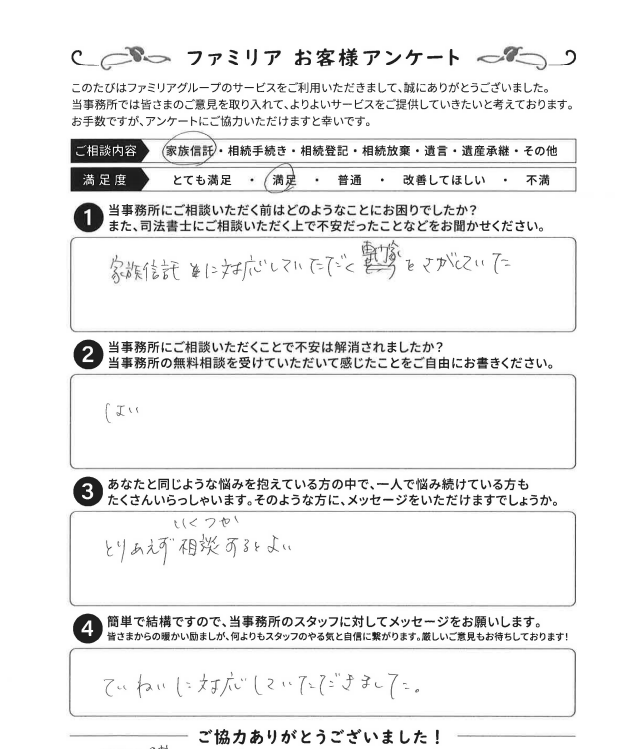 ファミリア お客様アンケート
このたびはファミリアグループのサービスをご利用いただきまして、誠にありがとうございました。
当事務所では皆さまのご意見を取り入れて、よりよいサービスをご提供していきたいと考えております。
お手数ですが、アンケートにご協力いただけますと幸いです。
ご相談内容 家族信託・相続手続き・相続登記・相続放棄・遺言・遺産承継・その他
満足度 とても満足 ・ 満足 ・ 普通 ・ 改善してほしい ・ 不満
1 当事務所にご相談いただく前はどのようなことにお困りでしたか?
また、司法書士にご相談いただく上で不安だったことなどをお聞かせください。
家族信託に対応していただく専門家をさがしていた
2 当事務所にご相談いただくことで不安は解消されましたか?
当事務所の無料相談を受けていただいて感じたことをご自由にお書きください。
はい
3 あなたと同じような悩みを抱えている方の中で、一人で悩み続けている方も
たくさんいらっしゃいます。そのような方に、メッセージをいただけますでしょうか。
いくつか
とりあえず相談するとよい
4 簡単で結構ですので、当事務所のスタッフに対してメッセージをお願いします。
皆さまからの暖かい励ましが、何よりもスタッフのやる気と自信に繋がります。厳しいご意見もお待ちしております!
ていねいに対応していただきました。
ご協力ありがとうございました!